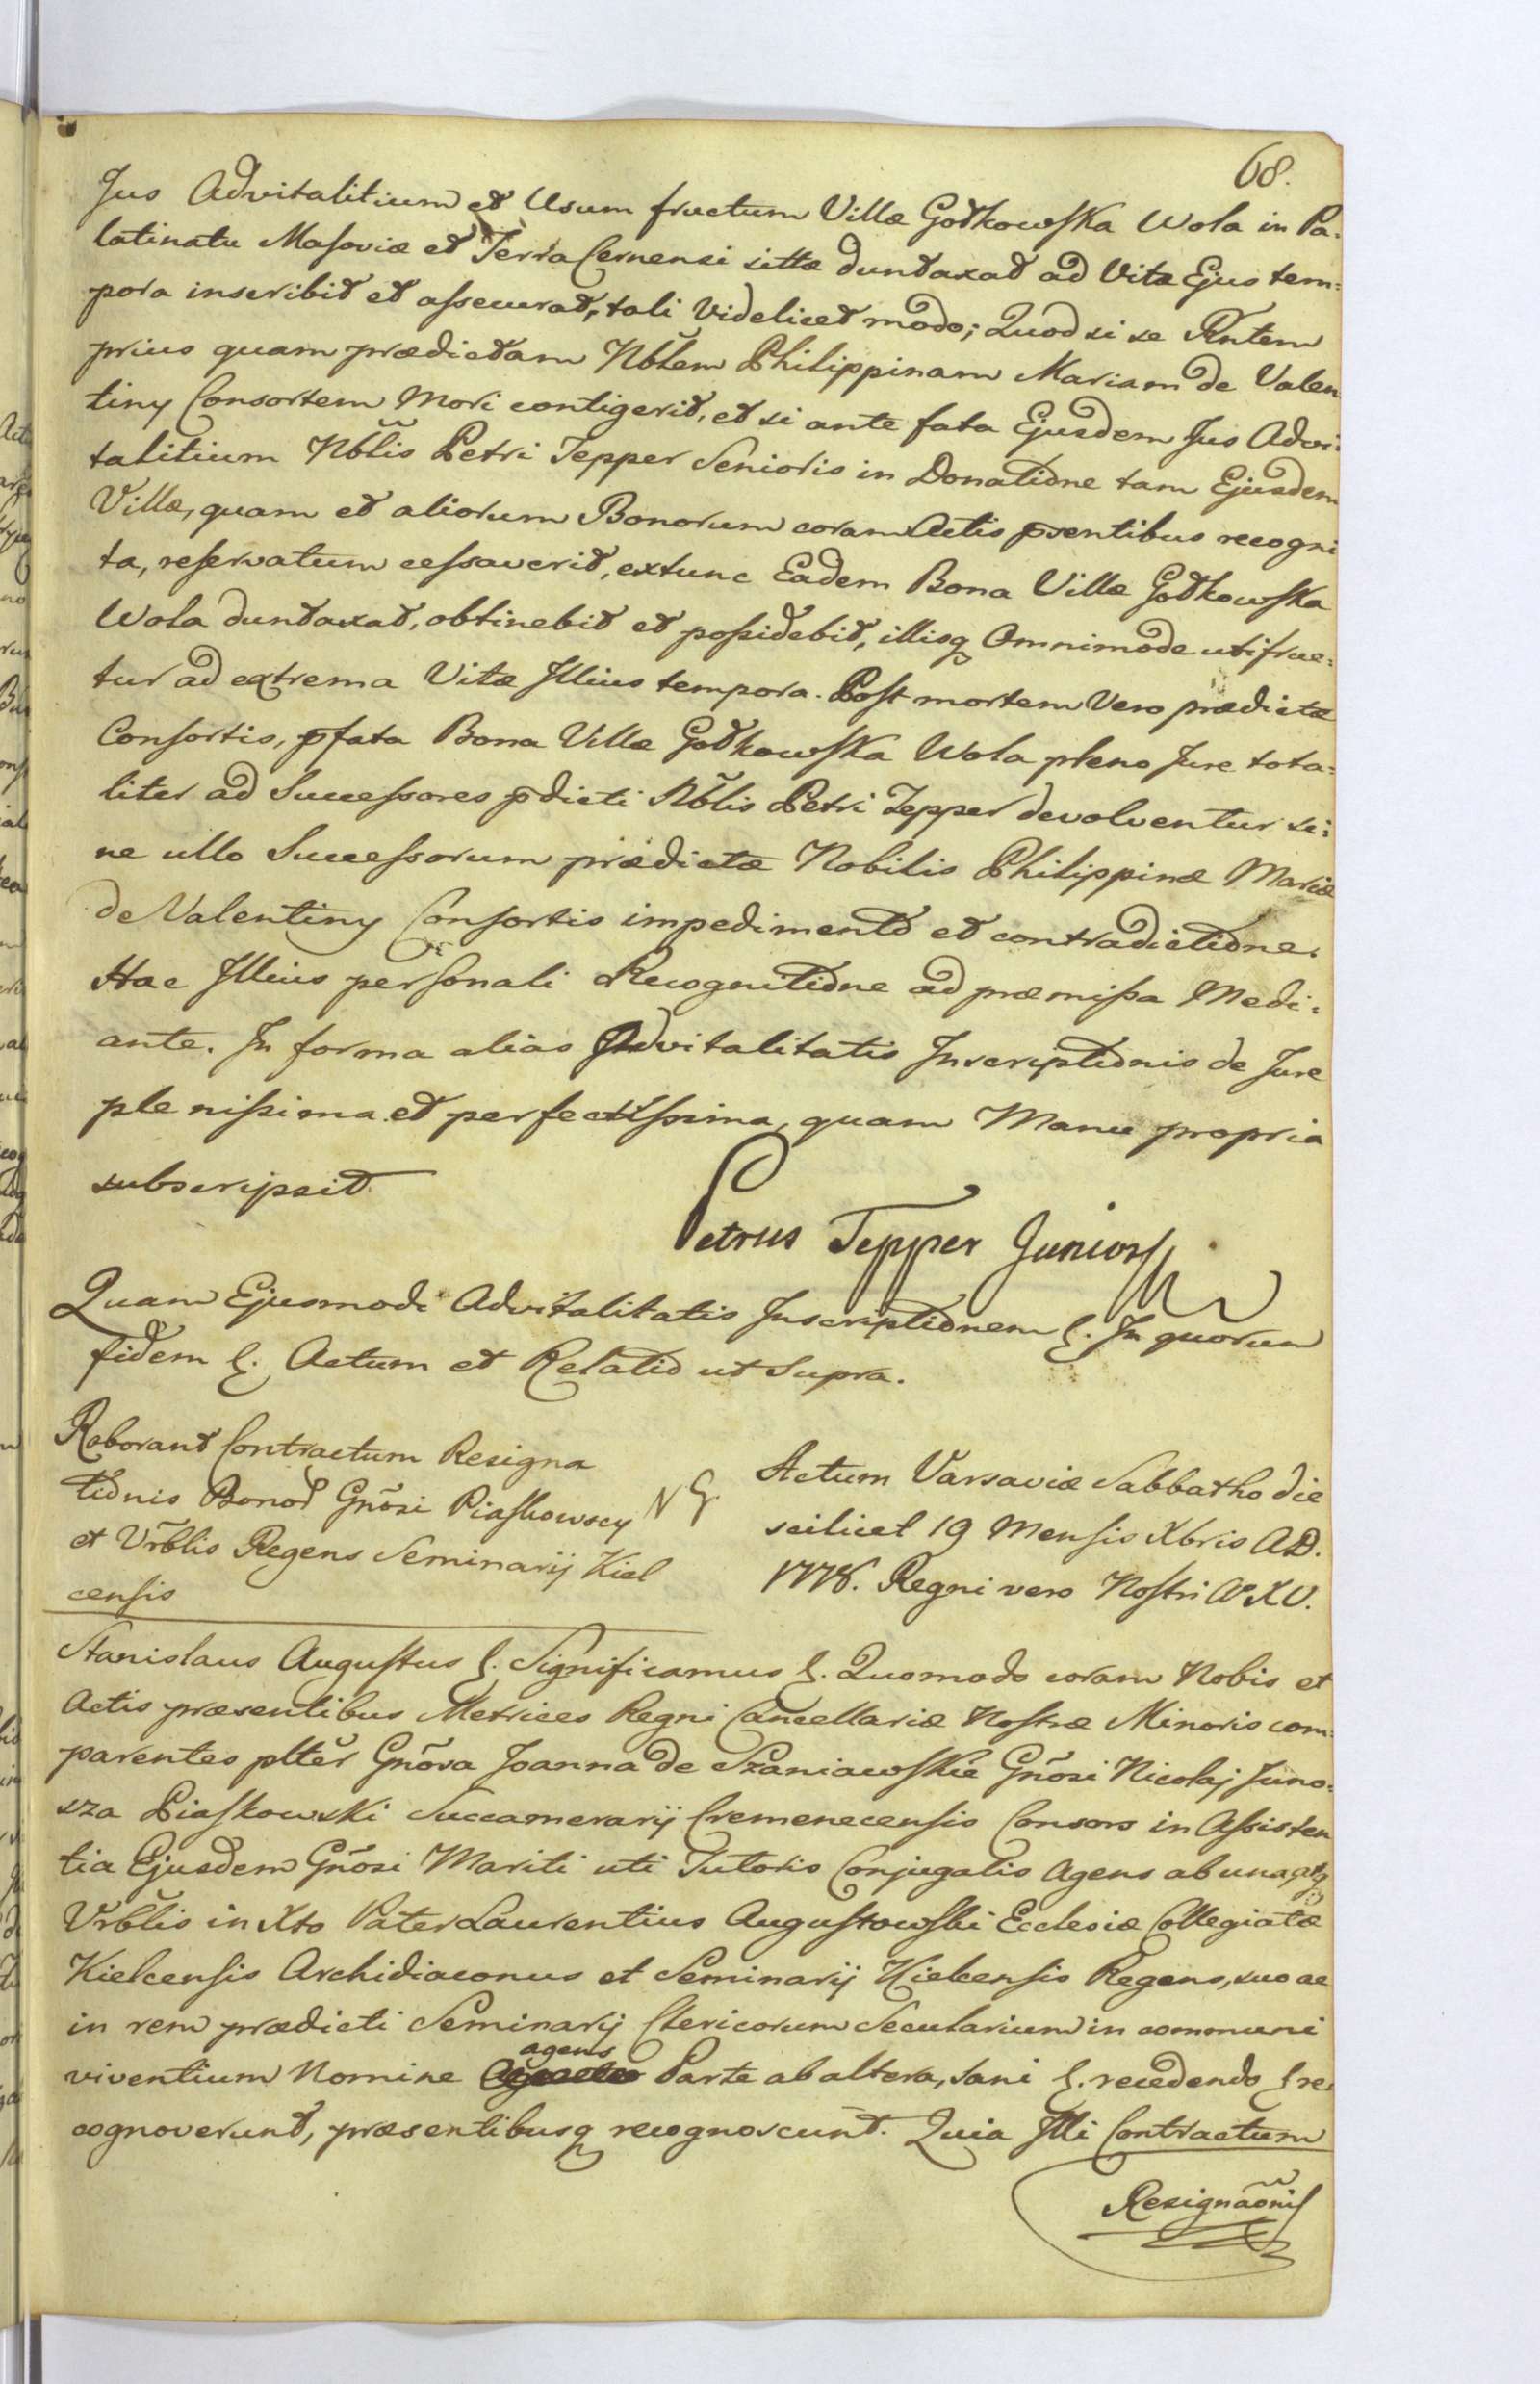 68.
Jus Advitalitium et Usum fructum Villæ Gotkowska Wola in Pa=
latinatu Masoviæ et Terra Cernensi sittæ duntaxat ad Vitæ Ejus tem=
pora inscribit et assecurat, tali Videlicet modo; Quod si se Antem
prius quam prædictam Nblem Philippinam Mariam de Valen
tiny Consortem Mori contigerit, et si ante fata Ejusdem Jus Advi=
talitium Nblis Petri Tepper Senioris in Donatione tam Ejusdem
Villæ, quam et aliorum Bonorum coram Actis pæntibus recogni
ta, reservatum cessaverit, extunc Eadem Bona Villæ Gotkowska
Wola duntaxat, obtinebit et possidebit, illisq Omnimode utifrue=
tur ad extrema Vitæ Illius tempora. Post mortem Vero prædictæ
Consortis, pfata Bona Villæ Gotkowska Wola pleno Jure tota=
liter ad Successores pdicti Nblis Petri Tepper devolventur si=
ne ullo Successorum prædictæ Nobilis Philippinæ Mariæ
de Valentiny Consortis impedimento et contradictione.
Hac Illius personali Recognitione ad præmissa Medi=
ante. In forma alias Advitalitatis Inscriptionis de Jure
plenissima et perfectissima, quam Manu propria
subscripsit
Petrus Tepper Junior
Quam Ejusmodi Advitalitatis Inscriptionem &. In quorum
fidem &. Actum et Relatio ut Supra.
Roborant Contractum Resigna
tionis Bonor Gnõsi Piaskowscy
et Vrblis Regens Seminarij Kiel
censis
Actum Varsaviæ Sabbatho die
scilicet 19 Mensis Xbris AD.
1778. Regni vero Nostri Aº XV.
Stanislaus Augustus &. Significamus &. Quomodo coram Nobis et
Actis præsentibus Metrices Regni Cancellariæ Nostræ Minoris com=
parentes plter Gnõsa Joanna de Szaniawskie Gnõsi Nicolaj Juno=
sza Piaskowski Succamerarij Cremenecensis Consors in Assisten
tia Ejusdem Gnõsi Mariti uti Tutoris Conjugalis Agens ab una, atq
Vrblis in Xto Pater Laurentius Augustowski Ecclesiæ Collegiatæ
Kielcensis Archidiaconus et Seminarij Kielcensis Regens, suo ac
in rem prædicti Seminarij Clericorum Secularium in communi
viventium Nomine agens Parte ab altera, sani &. recedendo & re=
cognoverunt, præsentibusq recognoscunt. Quia Illi Contractum
Resignaõnis